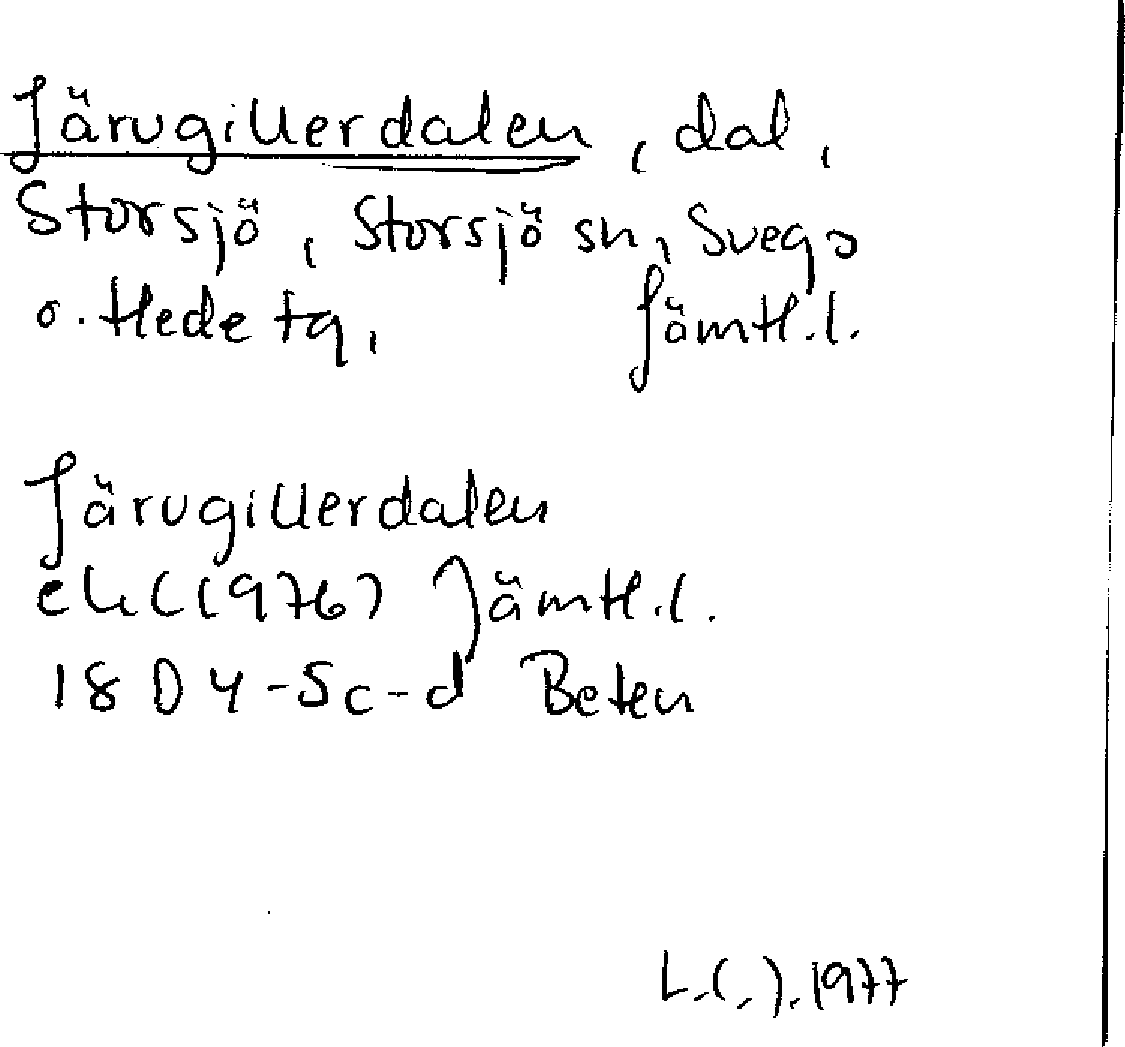 Järvgillerdalen, dal,
Storsjö, Storsjö sn, Svegs
o. Hede tg, Jämtl.l.
Järvgillerdalen
ek (1976) Jämtl.l.
18 D 4-5 c-d Beten
1977